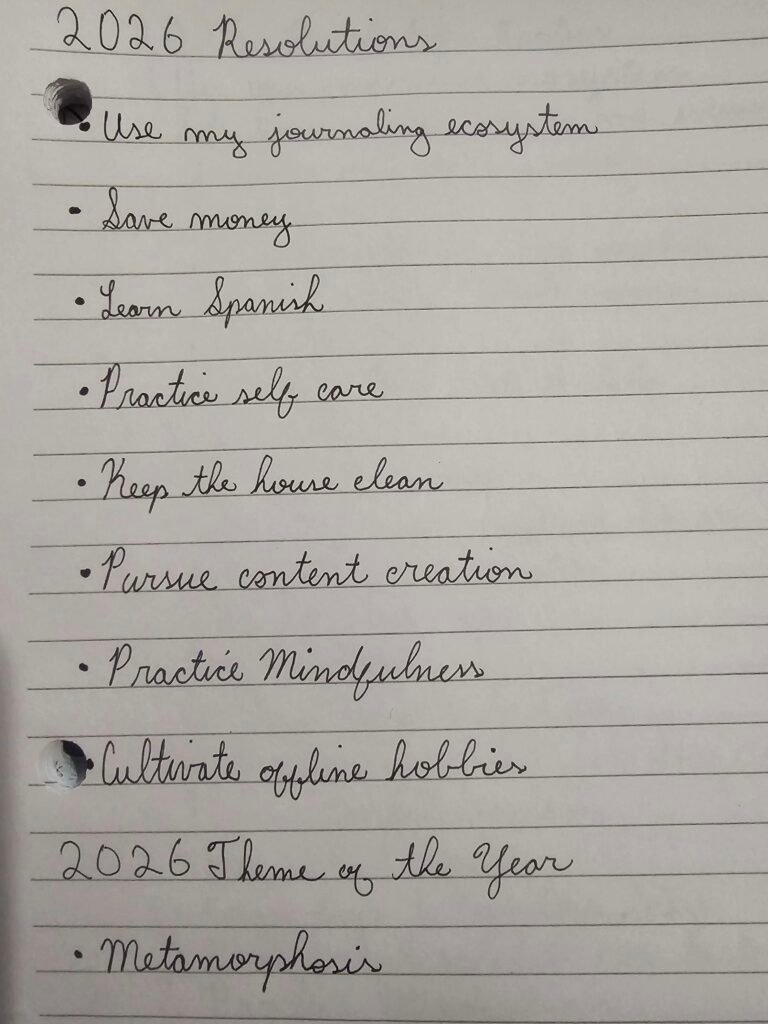 2026 Resolutions
• Use my journaling ecosystem
• Save money
• Learn Spanish
• Practice self care
• Keep the house clean
• Pursue content creation
• Practice Mindfulness
• Cultivate offline hobbies
2026 Theme of the Year
• Metamorphosis